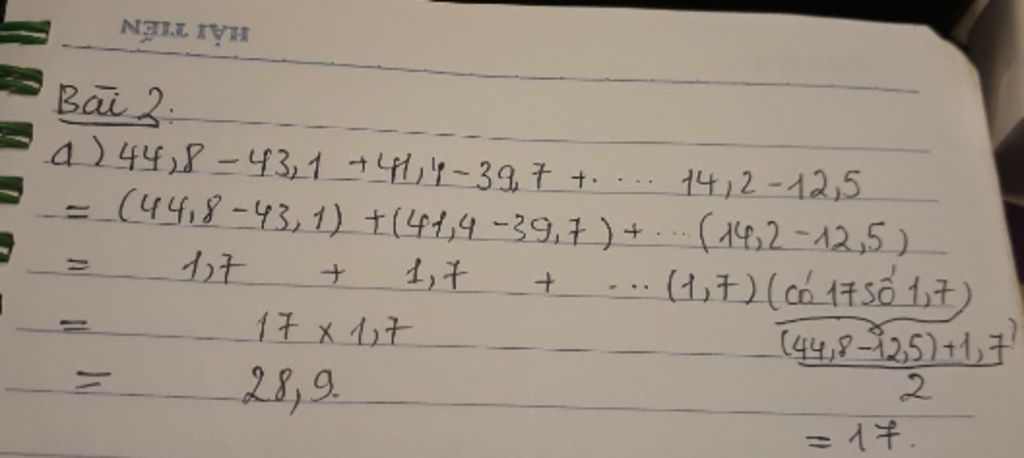 HẢI TIẾN
Bài 2:
a) 44,8 - 43,1 + 41,4 - 39,7 + .... 14,2 - 12,5
= (44,8 - 43,1) + (41,4 - 39,7) + ... (14,2 - 12,5)
= 1,7 + 1,7 + ... (1,7) (có 17 số 1,7)
= 17 x 1,7
(44,8 - 12,5) + 1,7
2
= 28,9.
= 17.